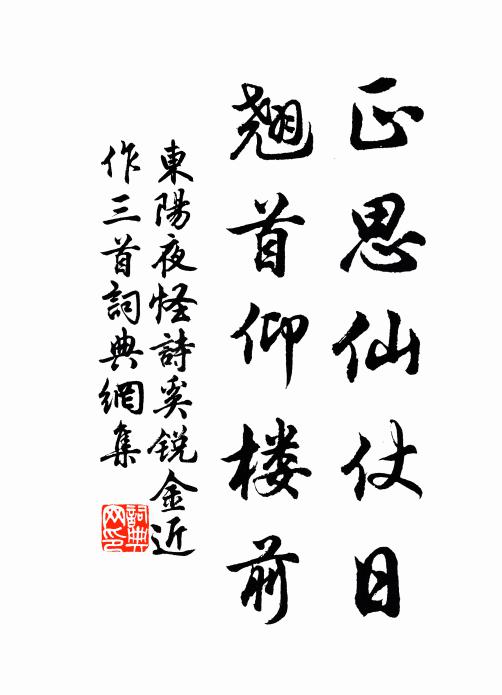 正思仙仗日
翘首仰楼前
東陽夜怪詩奚鋭金近
作三首詞典網集
詞典
网印